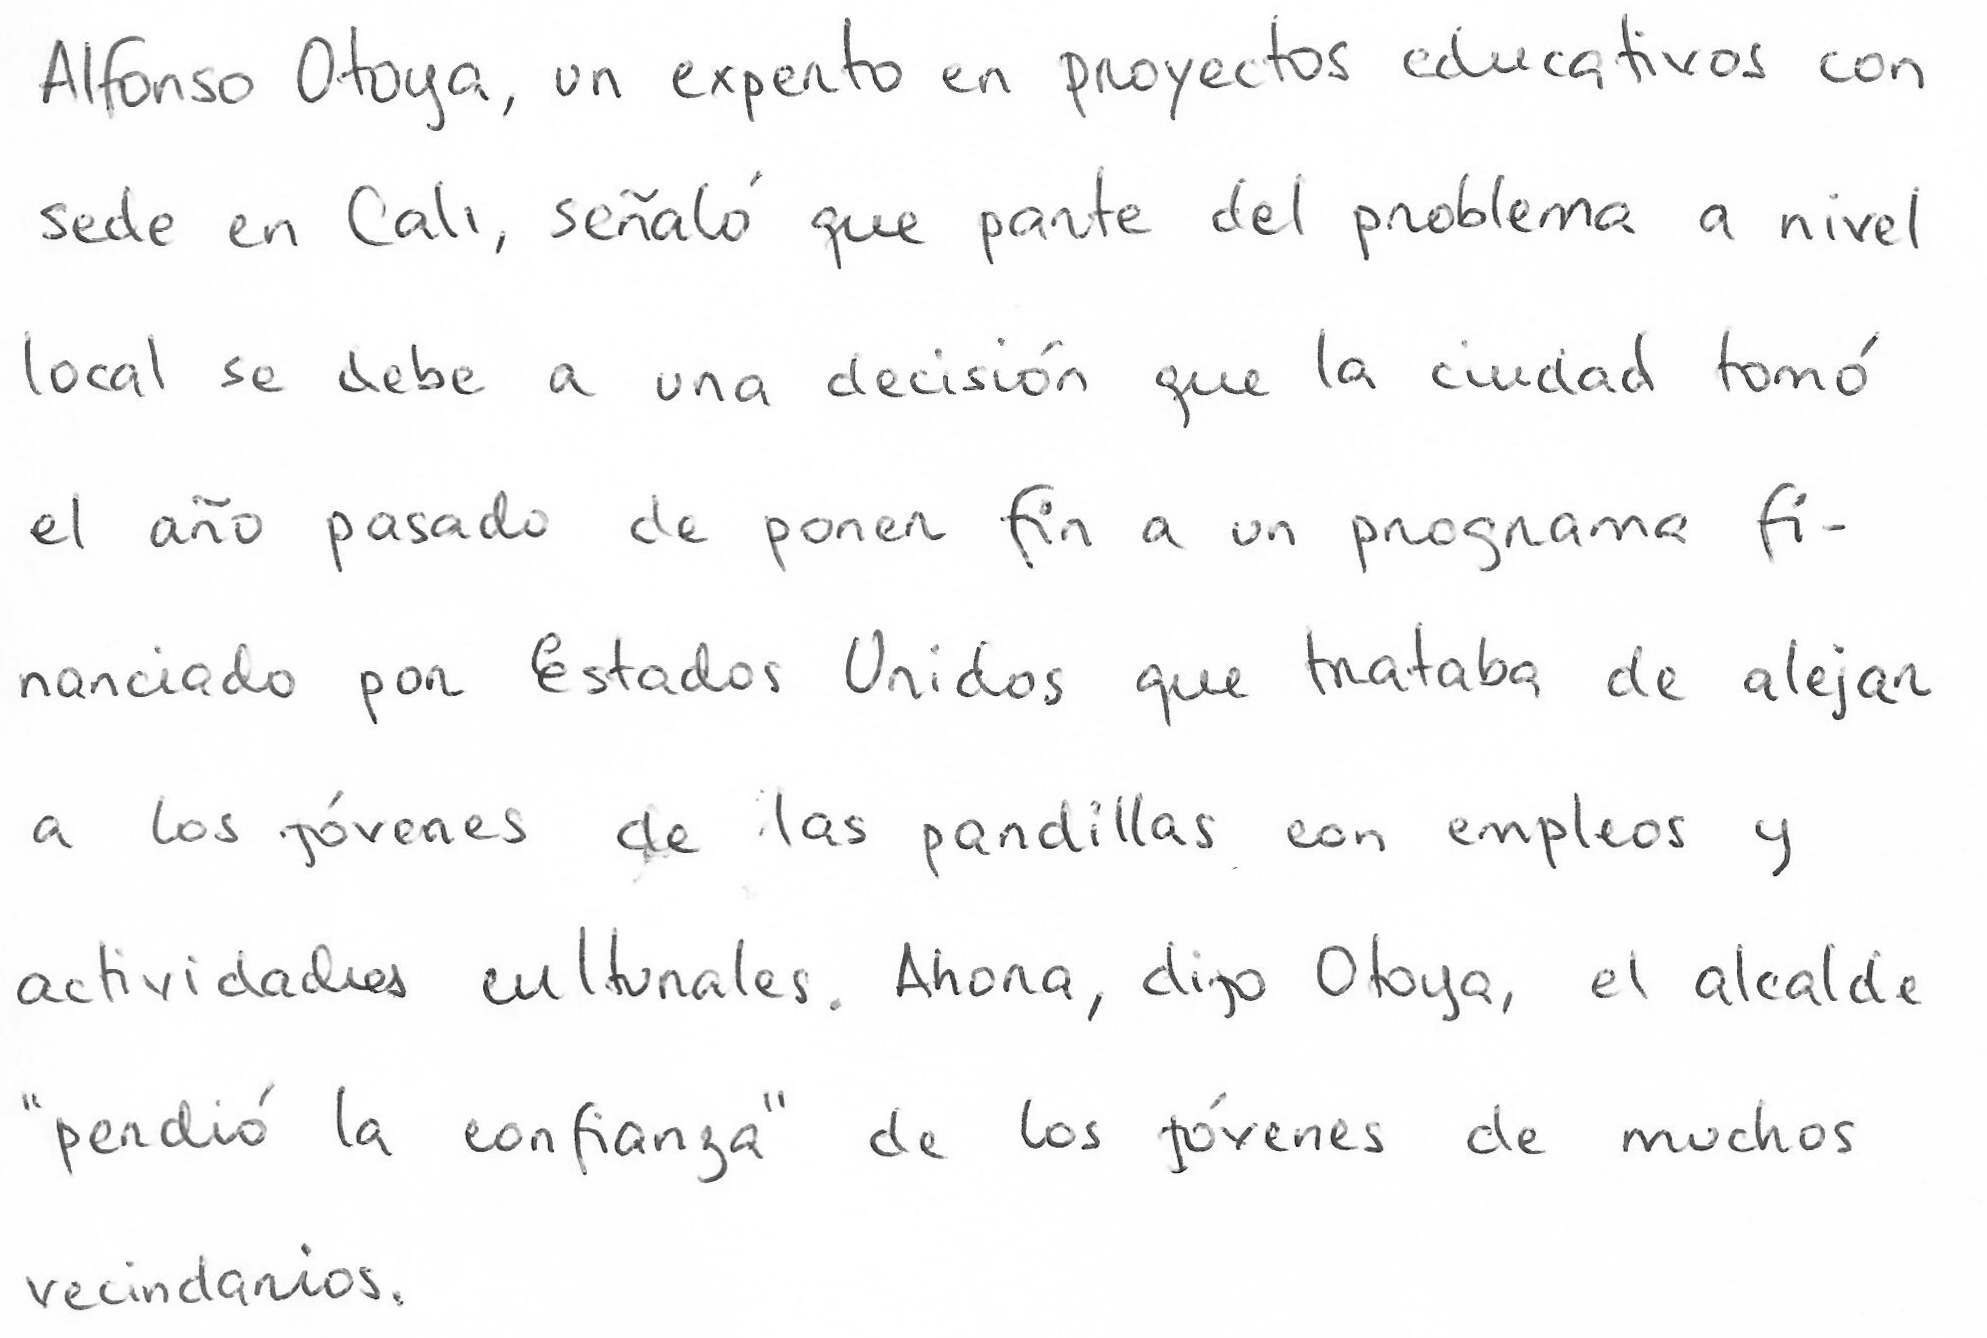 Alfonso Otoya, un experto en proyectos educativos con
sede en Cali, señaló que parte del problema a nivel
local se debe a una decisión que la ciudad tomó
el año pasado de poner fin a un programa fi-
nanciado por Estados Unidos que trataba de alejar
a los jóvenes de las pandillas con empleos y
actividades culturales. Ahora, dijo Otoya, el alcalde
"perdió la confianza" de los jóvenes de muchos
vecindarios.